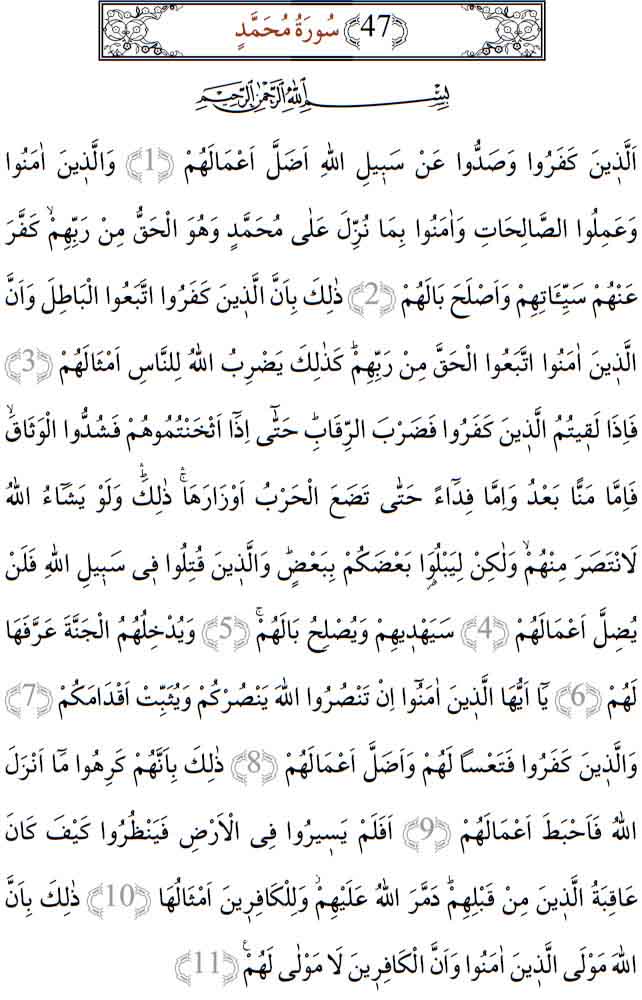 سُورَةُ مُحَمَّدٍ ﴿47﴾
بِسْمِ اللّٰهِ الرَّحْمٰنِ الرَّحِيمِ
اَلَّذٖينَ كَفَرُوا وَصَدُّوا عَنْ سَبٖيلِ اللّٰهِ اَضَلَّ اَعْمَالَهُمْ ﴿1﴾ وَالَّذٖينَ اٰمَنُوا
وَعَمِلُوا الصَّالِحَاتِ وَاٰمَنُوا بِمَا نُزِّلَ عَلٰى مُحَمَّدٍ وَهُوَ الْحَقُّ مِنْ رَبِّهِمْۙ كَفَّرَ
عَنْهُمْ سَيِّئَاتِهِمْ وَاَصْلَحَ بَالَهُمْ ﴿2﴾ ذٰلِكَ بِاَنَّ الَّذٖينَ كَفَرُوا اتَّبَعُوا الْبَاطِلَ وَاَنَّ
الَّذٖينَ اٰمَنُوا اتَّبَعُوا الْحَقَّ مِنْ رَبِّهِمْؕ كَذٰلِكَ يَضْرِبُ اللّٰهُ لِلنَّاسِ اَمْثَالَهُمْ ﴿3﴾
فَاِذَا لَقٖيتُمُ الَّذٖينَ كَفَرُوا فَضَرْبَ الرِّقَابِؕ حَتّٰٓى اِذَٓا اَثْخَنْتُمُوهُمْ فَشُدُّوا الْوَثَاقَۙ
فَاِمَّا مَنًّا بَعْدُ وَاِمَّا فِدَٓاءً حَتّٰى تَضَعَ الْحَرْبُ اَوْزَارَهَاۚ ذٰلِكَؕ وَلَوْ يَشَٓاءُ اللّٰهُ
لَانْتَصَرَ مِنْهُمْۙ وَلٰكِنْ لِيَبْلُوَ۬ا بَعْضَكُمْ بِبَعْضٍؕ وَالَّذٖينَ قُتِلُوا فٖى سَبٖيلِ اللّٰهِ فَلَنْ
يُضِلَّ اَعْمَالَهُمْ ﴿4﴾ سَيَهْدٖيهِمْ وَيُصْلِحُ بَالَهُمْۚ ﴿5﴾ وَيُدْخِلُهُمُ الْجَنَّةَ عَرَّفَهَا
لَهُمْ ﴿6﴾ يَٓا اَيُّهَا الَّذٖينَ اٰمَنُٓوا اِنْ تَنْصُرُوا اللّٰهَ يَنْصُرْكُمْ وَيُثَبِّتْ اَقْدَامَكُمْ ﴿7﴾
وَالَّذٖينَ كَفَرُوا فَتَعْسًا لَهُمْ وَاَضَلَّ اَعْمَالَهُمْ ﴿8﴾ ذٰلِكَ بِاَنَّهُمْ كَرِهُوا مَٓا اَنْزَلَ
اللّٰهُ فَاَحْبَطَ اَعْمَالَهُمْ ﴿9﴾ اَفَلَمْ يَسٖيرُوا فِى الْاَرْضِ فَيَنْظُرُوا كَيْفَ كَانَ
عَاقِبَةُ الَّذٖينَ مِنْ قَبْلِهِمْؕ دَمَّرَ اللّٰهُ عَلَيْهِمْؗ وَلِلْكَافِرٖينَ اَمْثَالُهَا ﴿10﴾ ذٰلِكَ بِاَنَّ
اللّٰهَ مَوْلَى الَّذٖينَ اٰمَنُوا وَاَنَّ الْكَافِرٖينَ لَا مَوْلٰى لَهُمْࣖ ﴿11﴾